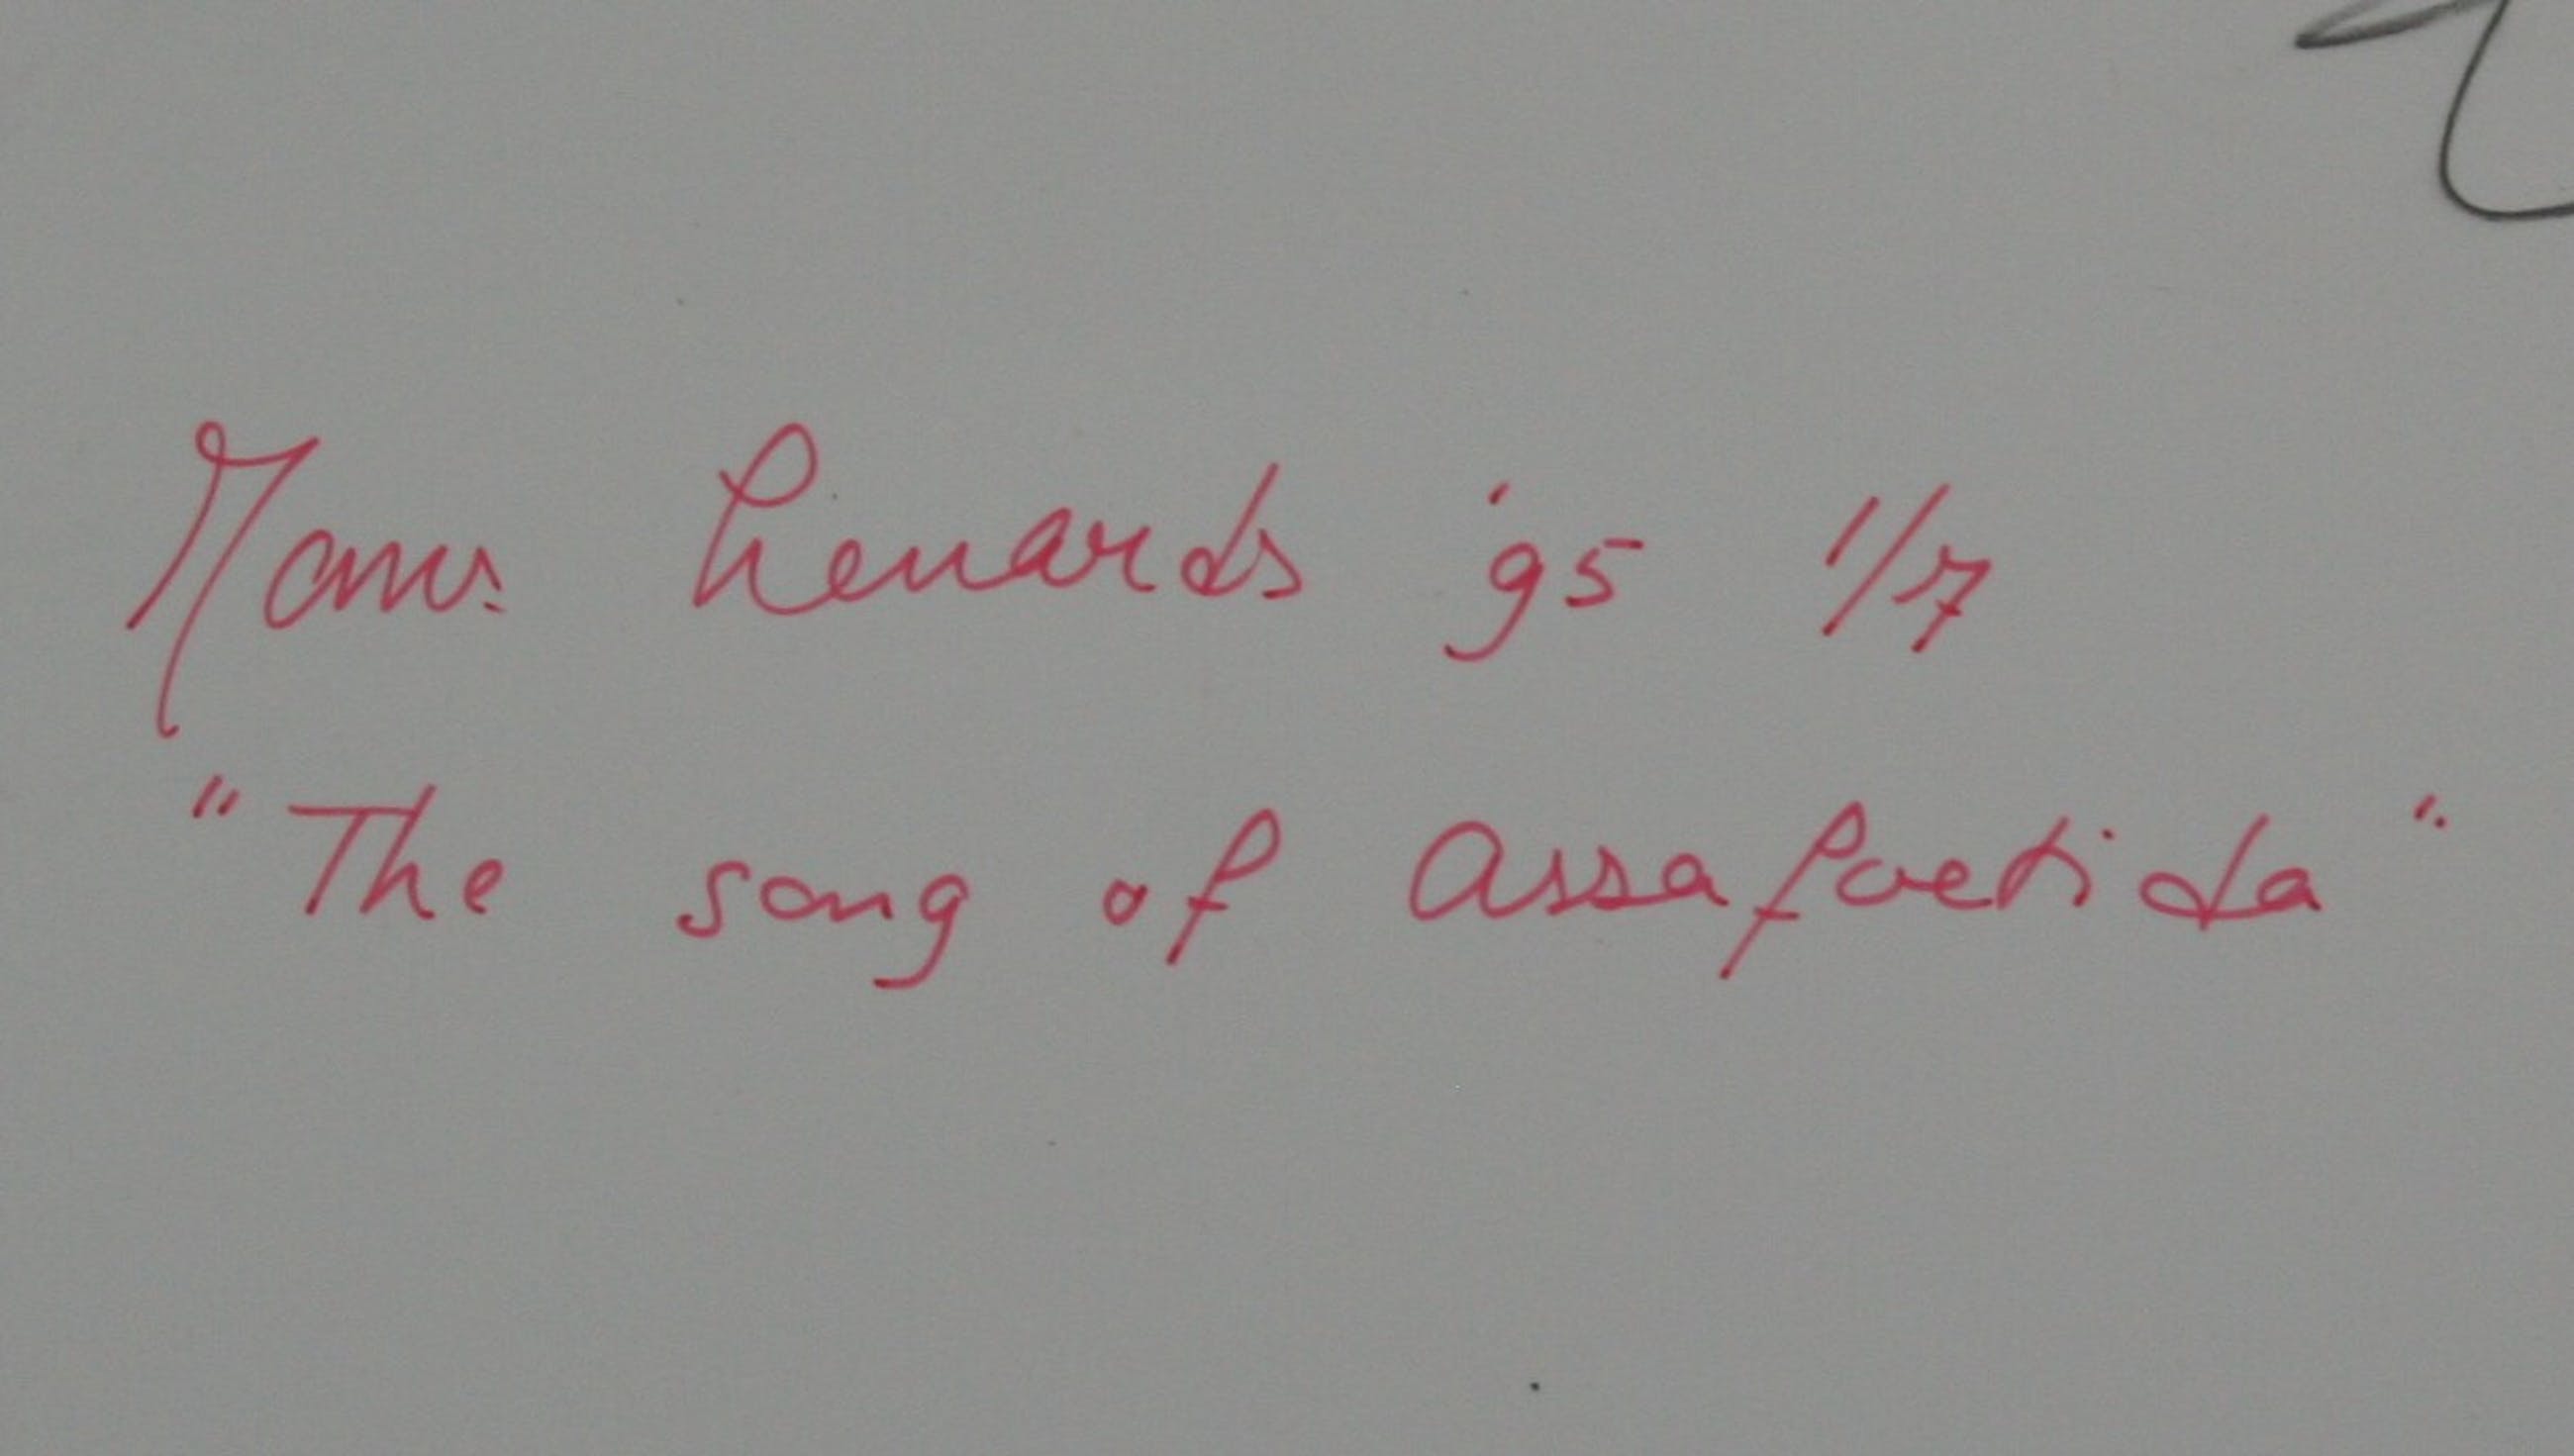 Lenards '95 1/7
"The song of Assafoetida"